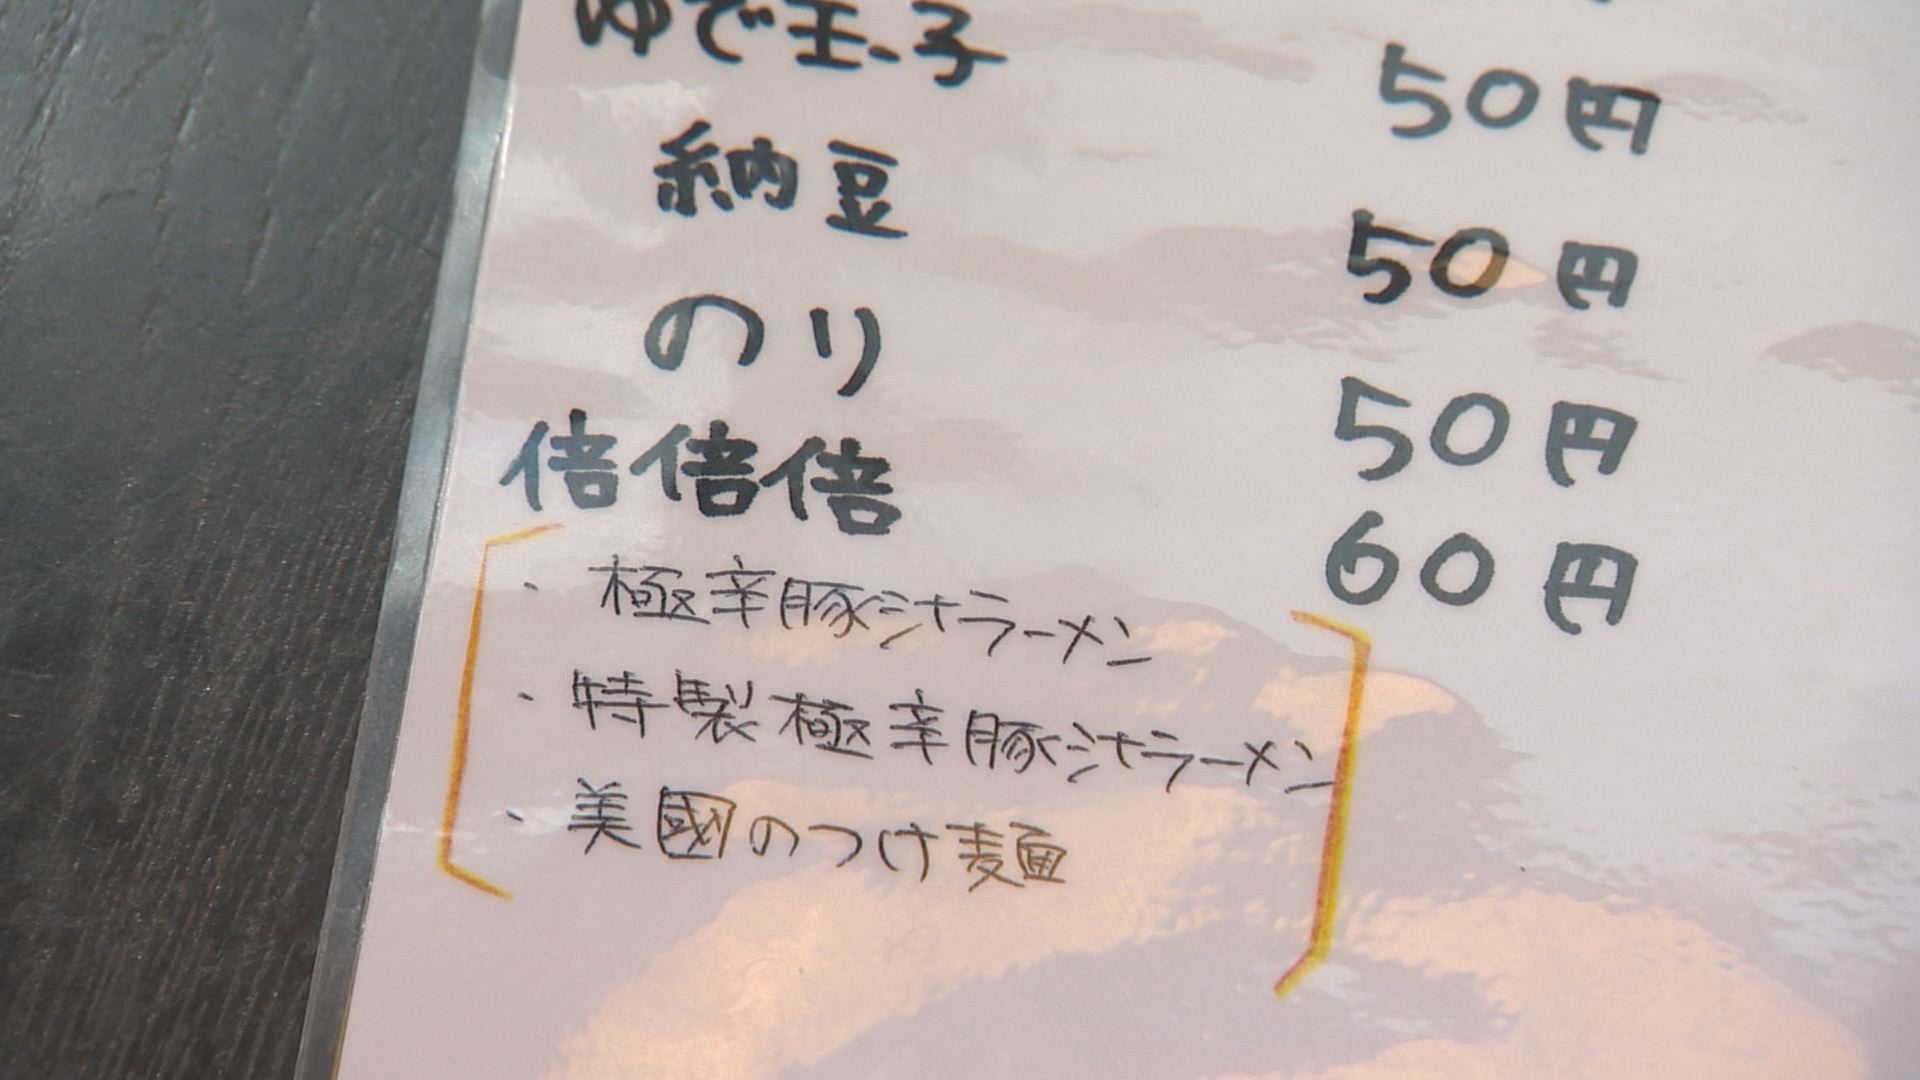 ゆで玉子 50円
納豆 50円
のり 50円
倍倍倍 60円
・極辛豚汁ラーメン
・特製極辛豚汁ラーメン
・美國のつけ麺